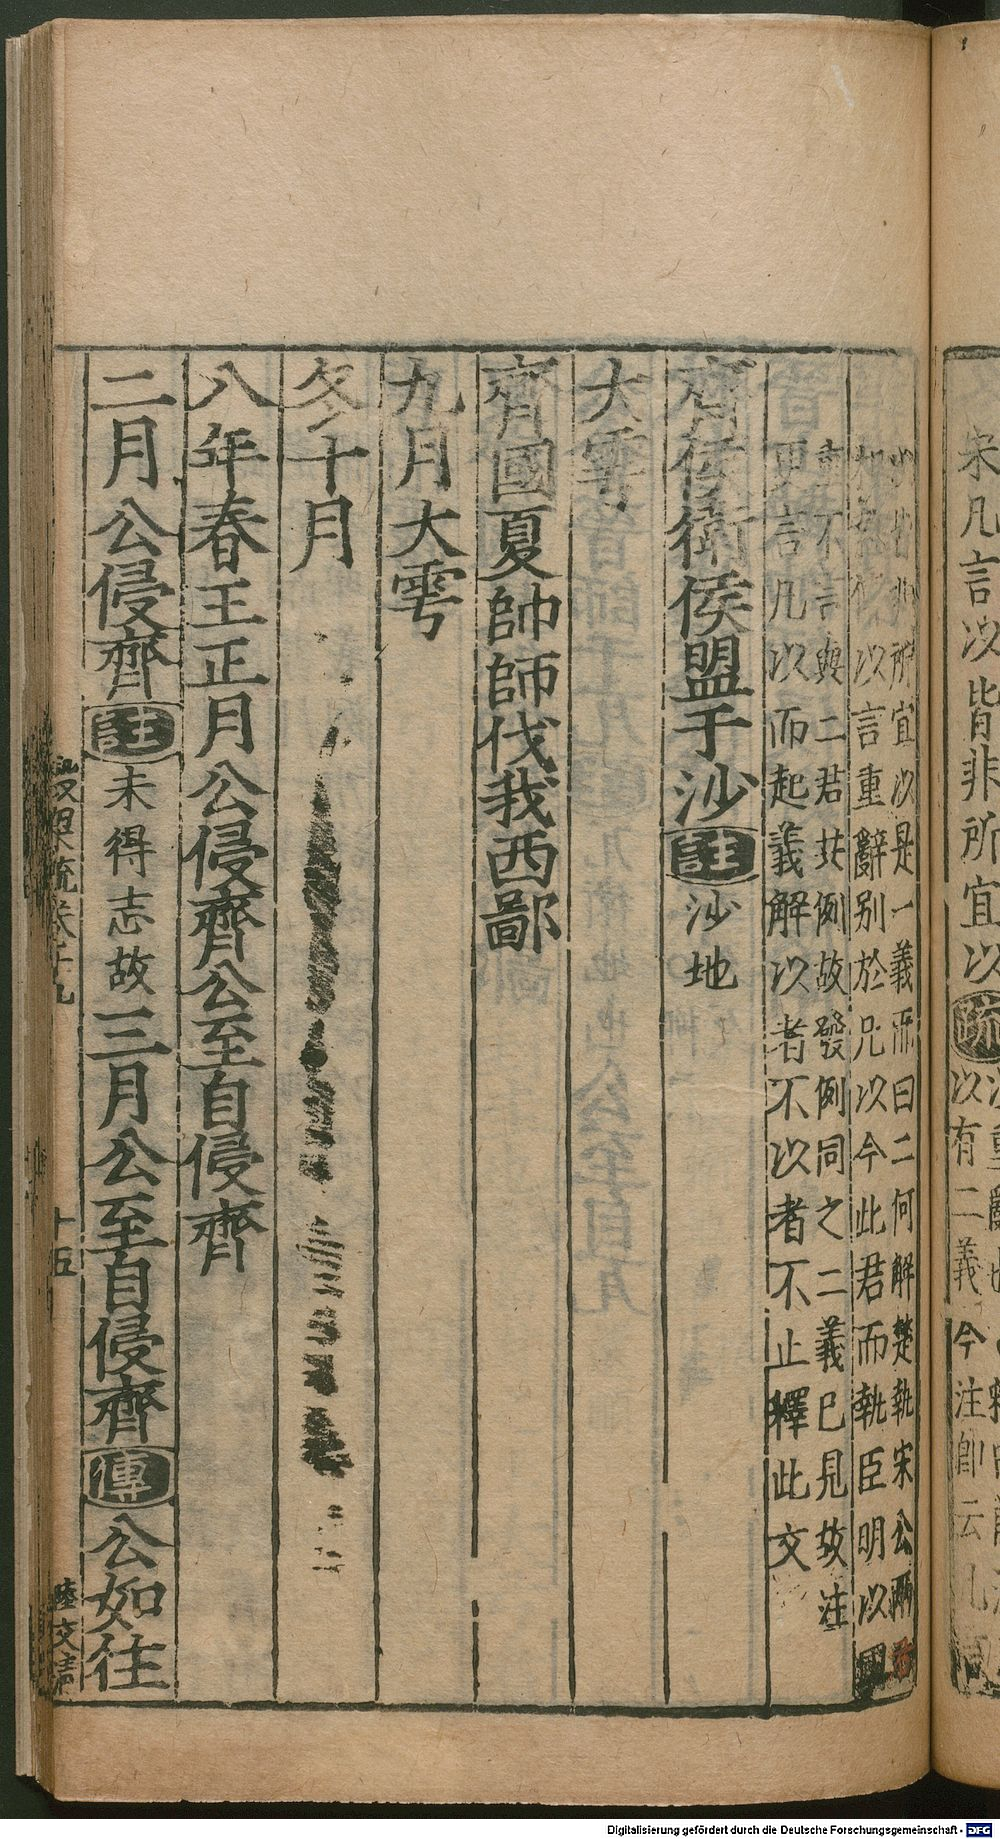 宋凡言以皆非所宜以疏以有二義今注卽云
以皆非所宜以是一義而曰二何解楚執宋公兩
以言重辭別於凡以今此君而執臣明以國
不言與二君共例故發例同之二義已見故注
更言凡以而起義解以者不以者不止釋此文
齊侯衛侯盟于沙註沙地
大雩
齊國夏帥師伐我西鄙
九月大雩
冬十月
八年春王正月公侵齊公至自侵齊
二月公侵齊註未得志故三月公至自侵齊傳公如往
穀梁疏卷十九
十五
陸文清
Digitalisierung gefördert durch die Deutsche Forschungsgemeinschaft - DFG